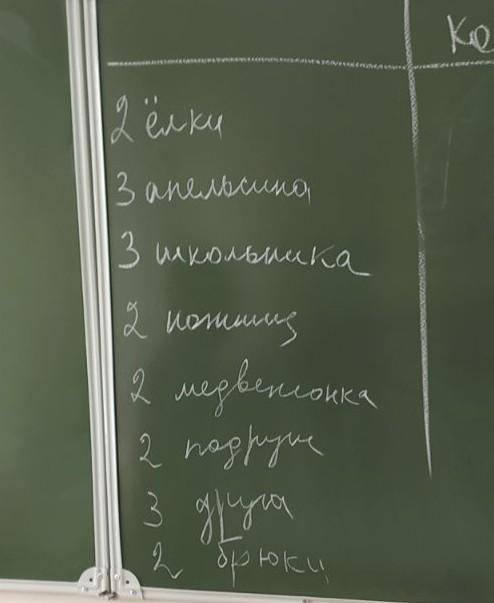 Ко
2 ёлки
3 апельсина
3 школьника
2 ножниц
2 медвежонка
2 подруги
3 друга
2 брюки